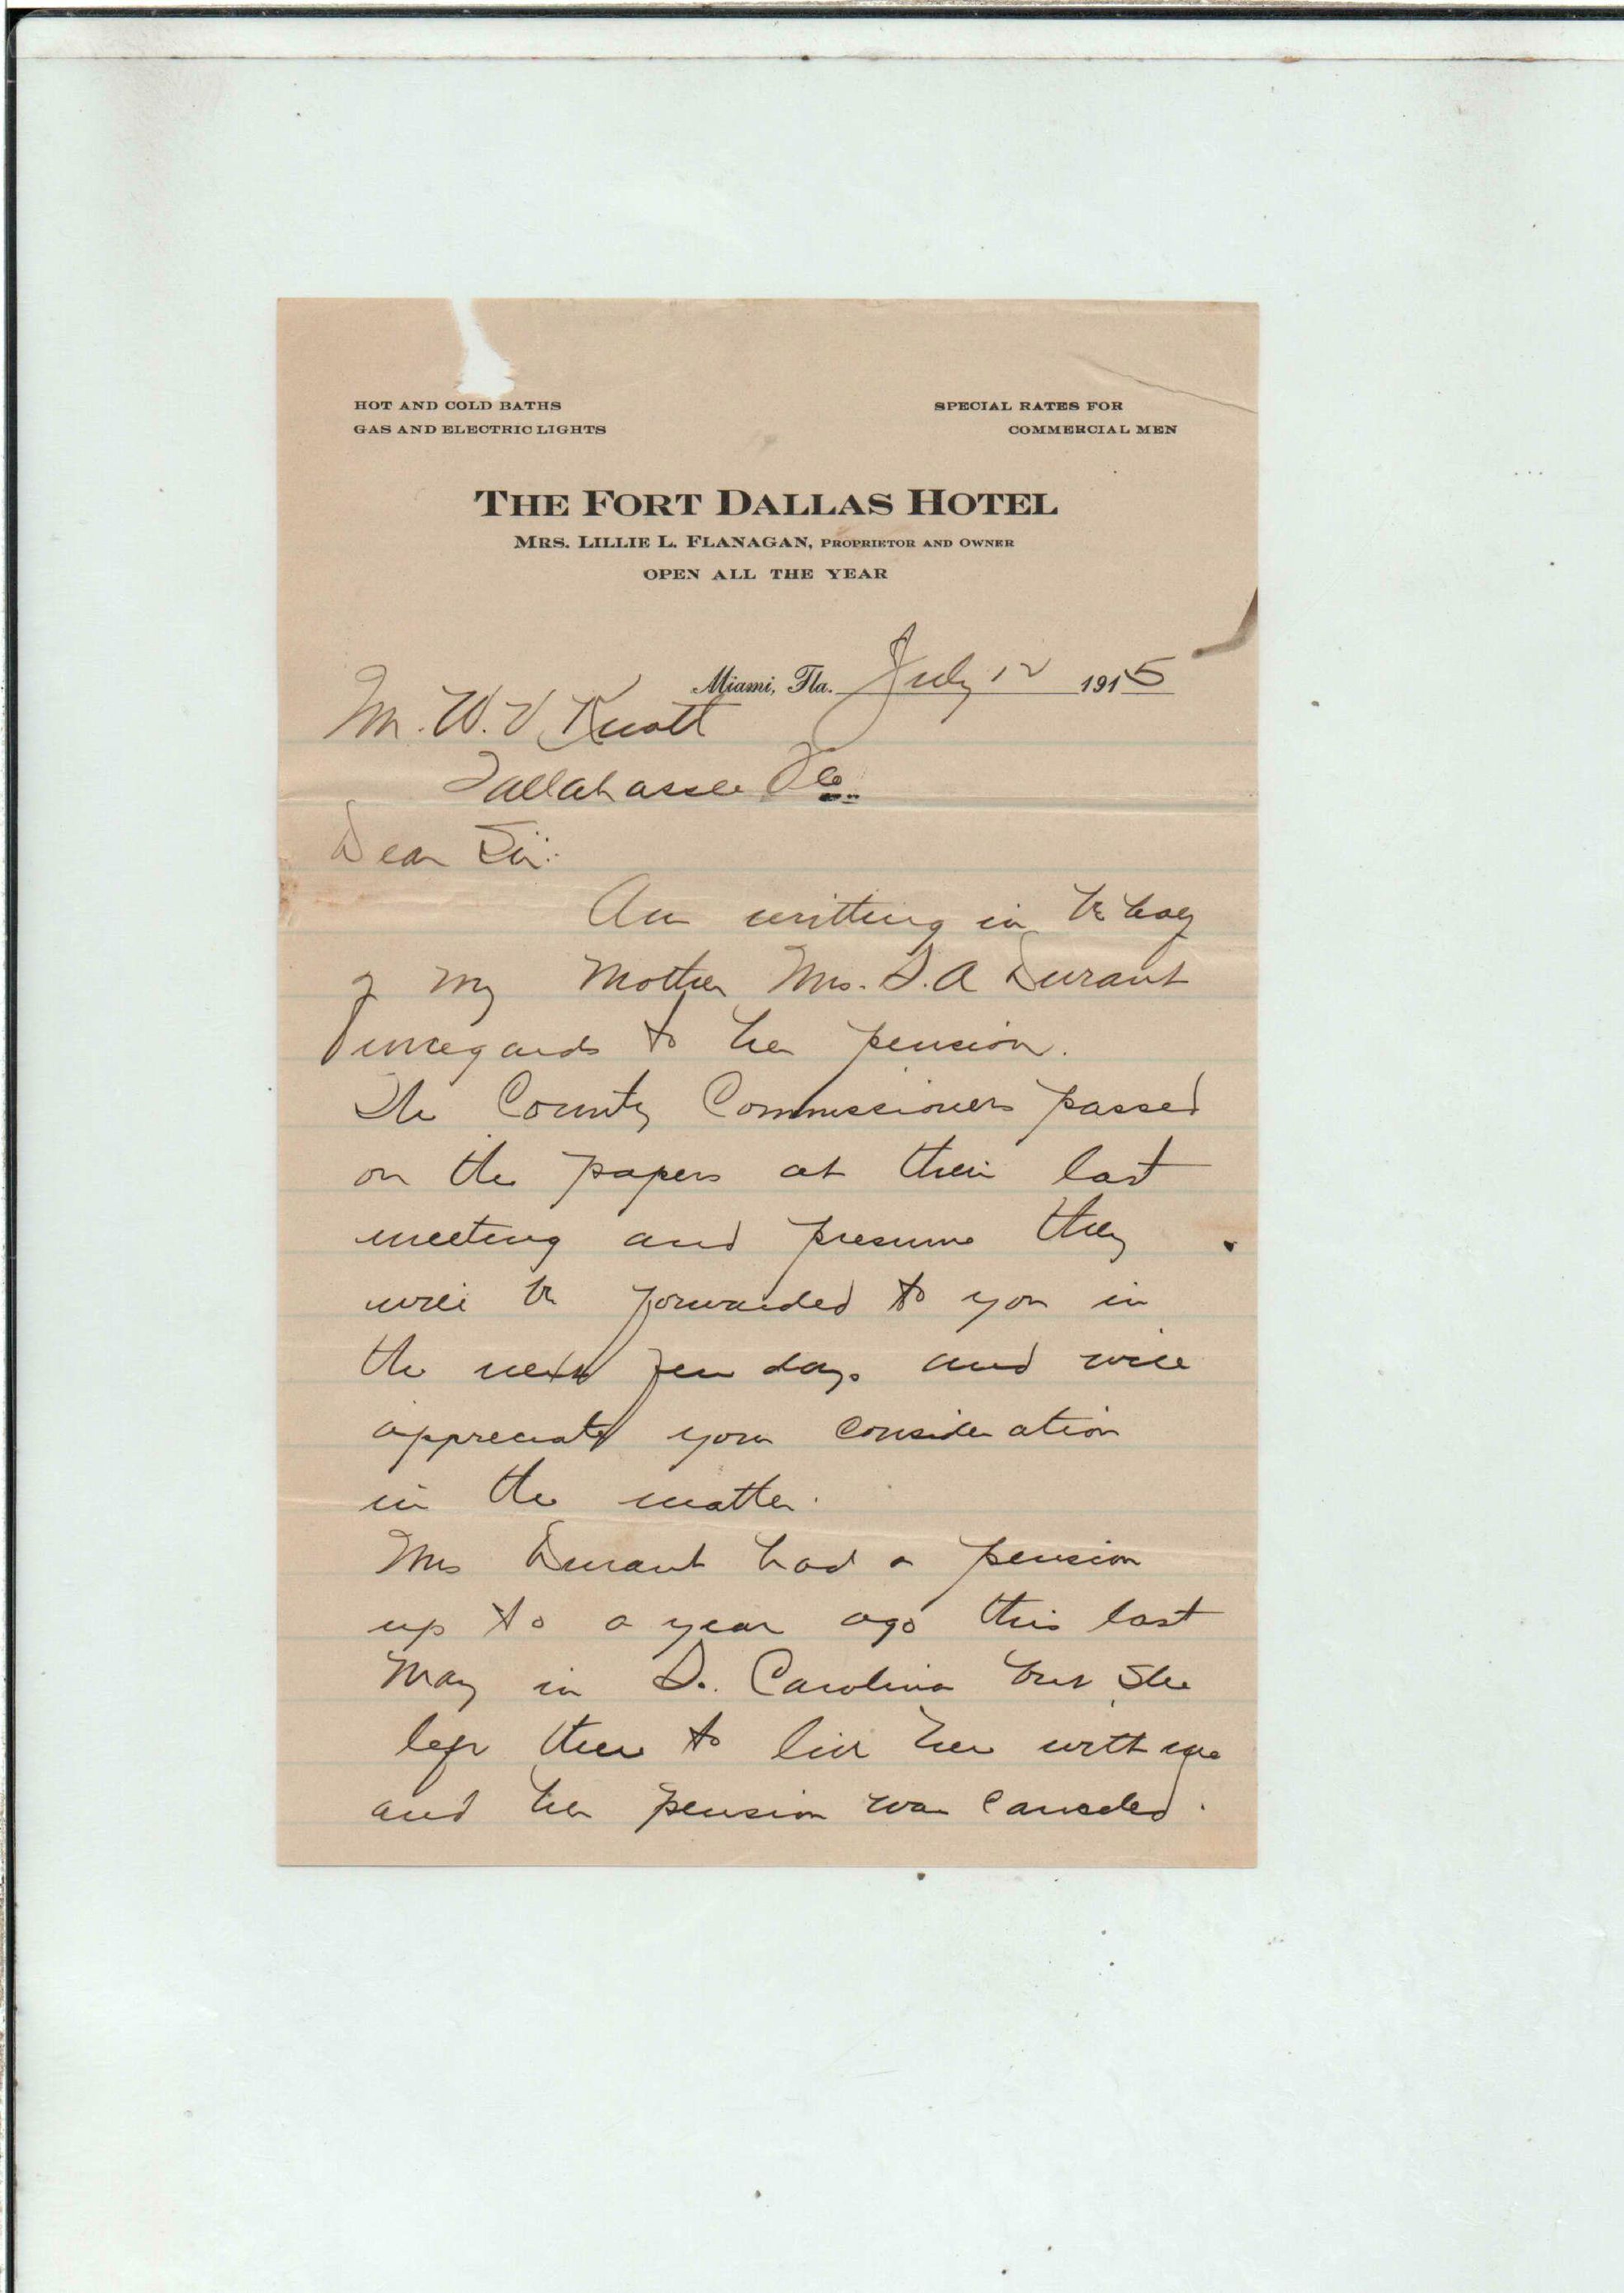 HOT AND COLD BATHS
GAS AND ELECTRIC LIGHTS
SPECIAL RATES FOR
COMMERCIAL MEN
THE FORT DALLAS HOTEL
MRS. LILLIE L. FLANAGAN, PROPRIETOR AND OWNER
OPEN ALL THE YEAR
Miami, Fla. July 12 1915
Mr. W. V. Knott
Tallahassee Fla.
Dear Sir:
Am writting in behalf
of my Mother Mrs. S. A Durant
inregards to her pension.
The County Commissioners passed
on the papers at their last
meeting and presume they
will be forwarded to you in
the next few days and will
appreciate your consideration
in the matter.
Mrs Durant had a pension
up to a year ago this last
May in S. Carolina but she
left there to live here with me
and her pension was canceled.